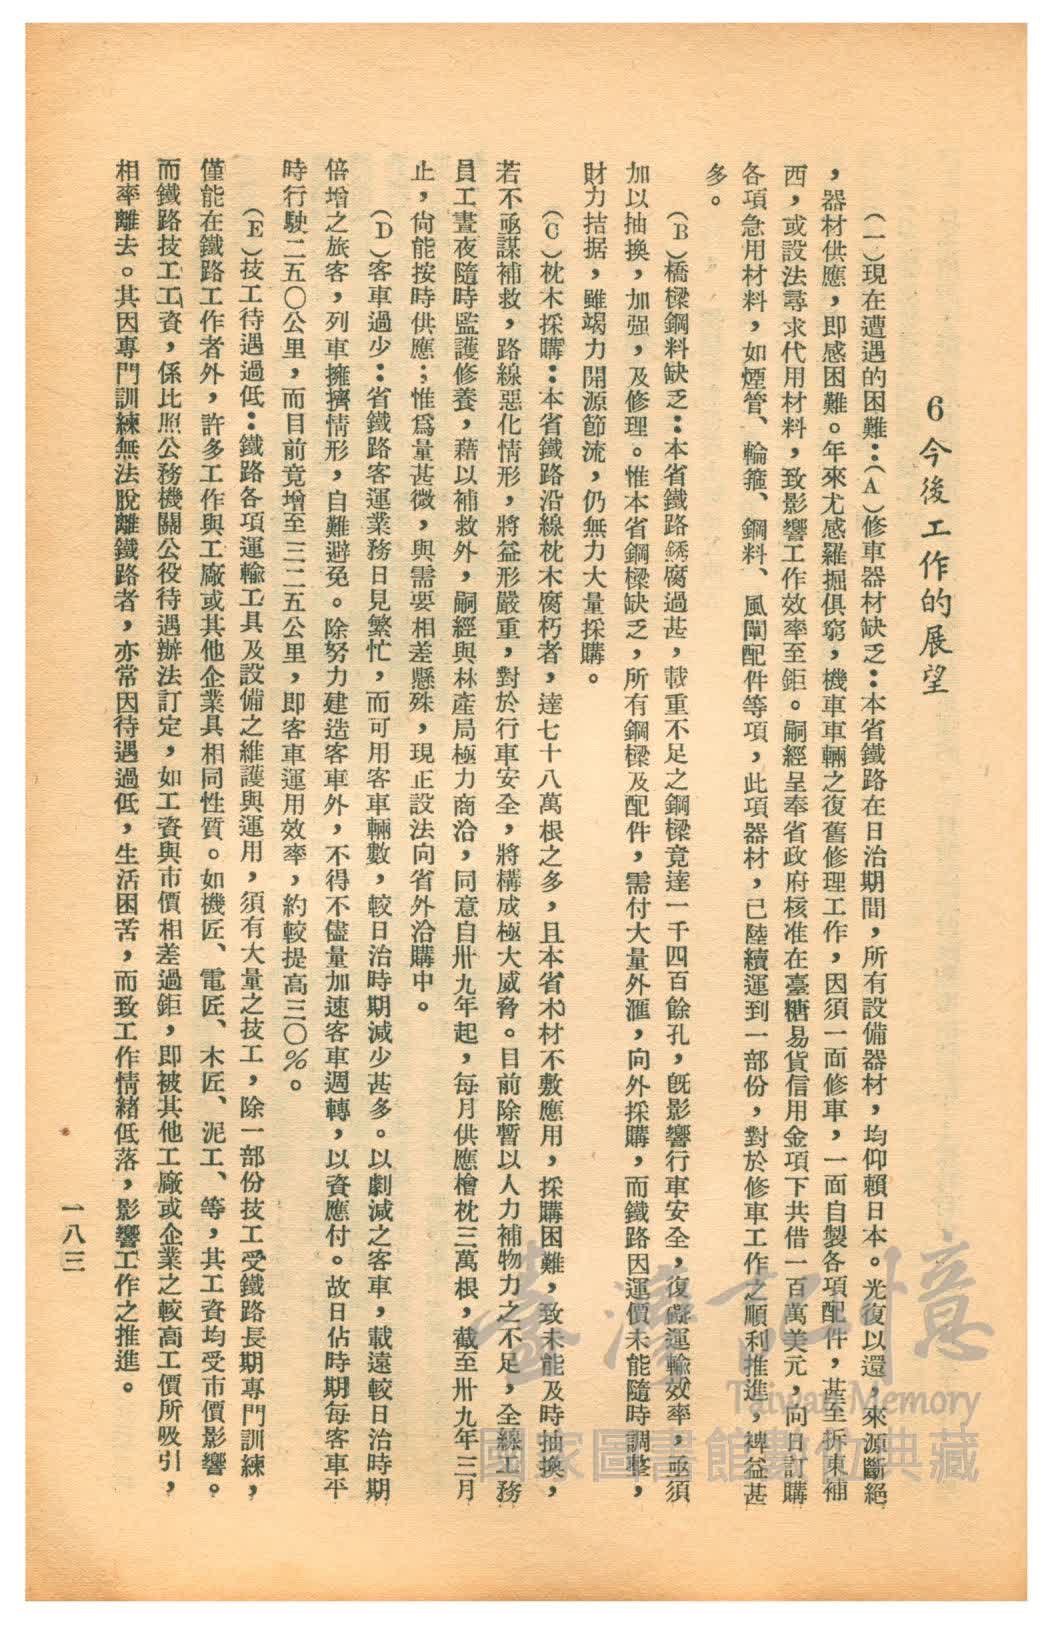 6 今後工作的展望
（一）現在遭遇的困難：（A）修車器材缺乏：本省鐵路在日治期間，所有設備器材，均仰賴日本。光復以還，來源斷絕
，器材供應，即感困難。年來尤感羅掘俱窮，機車車輛之復舊修理工作，因須一面修車，一面自製各項配件，甚至拆東補
西，或設法尋求代用材料，致影響工作效率至鉅。嗣經呈奉省政府核准在臺糖易貨信用金項下共借一百萬美元，向日訂購
各項急用材料，如煙管、輪箍、鋼料、風閘配件等項，此項器材，已陸續運到一部份，對於修車工作之順利推進，裨益甚
多。
（B）橋樑鋼料缺乏：本省鐵路銹腐過甚，載重不足之鋼樑竟達一千四百餘孔，旣影響行車安全，復礙運輸效率，亟須
加以抽換，加强，及修理。惟本省鋼樑缺乏，所有鋼樑及配件，需付大量外滙，向外採購，而鐵路因運價未能隨時調整，
財力拮据，雖竭力開源節流，仍無力大量採購。
（C）枕木採購：本省鐵路沿線枕木腐朽者，達七十八萬根之多，且本省木材不敷應用，採購困難，致未能及時抽換，
若不亟謀補救，路線惡化情形，將益形嚴重，對於行車安全，將構成極大威脅。目前除暫以人力補物力之不足，全線工務
員工晝夜隨時監護修養，藉以補救外，嗣經與林產局極力商洽，同意自卅九年起，每月供應檜枕三萬根，截至卅九年三月
止，尙能按時供應；惟爲量甚微，與需要相差懸殊，現正設法向省外洽購中。
（D）客車過少：省鐵路客運業務日見繁忙，而可用客車輛數，較日治時期減少甚多。以劇減之客車，載遠較日治時期
倍增之旅客，列車擁擠情形，自難避免。除努力建造客車外，不得不儘量加速客車週轉，以資應付。故日佔時期每客車平
時行駛二五〇公里，而目前竟增至三二五公里，即客車運用效率，約較提高三〇％。
（E）技工待遇過低：鐵路各項運輸工具及設備之維護與運用，須有大量之技工，除一部份技工受鐵路長期專門訓練，
僅能在鐵路工作者外，許多工作與工廠或其他企業具相同性質。如機匠、電匠、木匠、泥工、等，其工資均受市價影響。
而鐵路技工工資，係比照公務機關公役待遇辦法訂定，如工資與市價相差過鉅，即被其他工廠或企業之較高工價所吸引，
相率離去。其因專門訓練無法脫離鐵路者，亦常因待遇過低，生活困苦，而致工作情緒低落，影響工作之推進。
一八三
臺灣記憶
Taiwan Memory
國家圖書館數位典藏